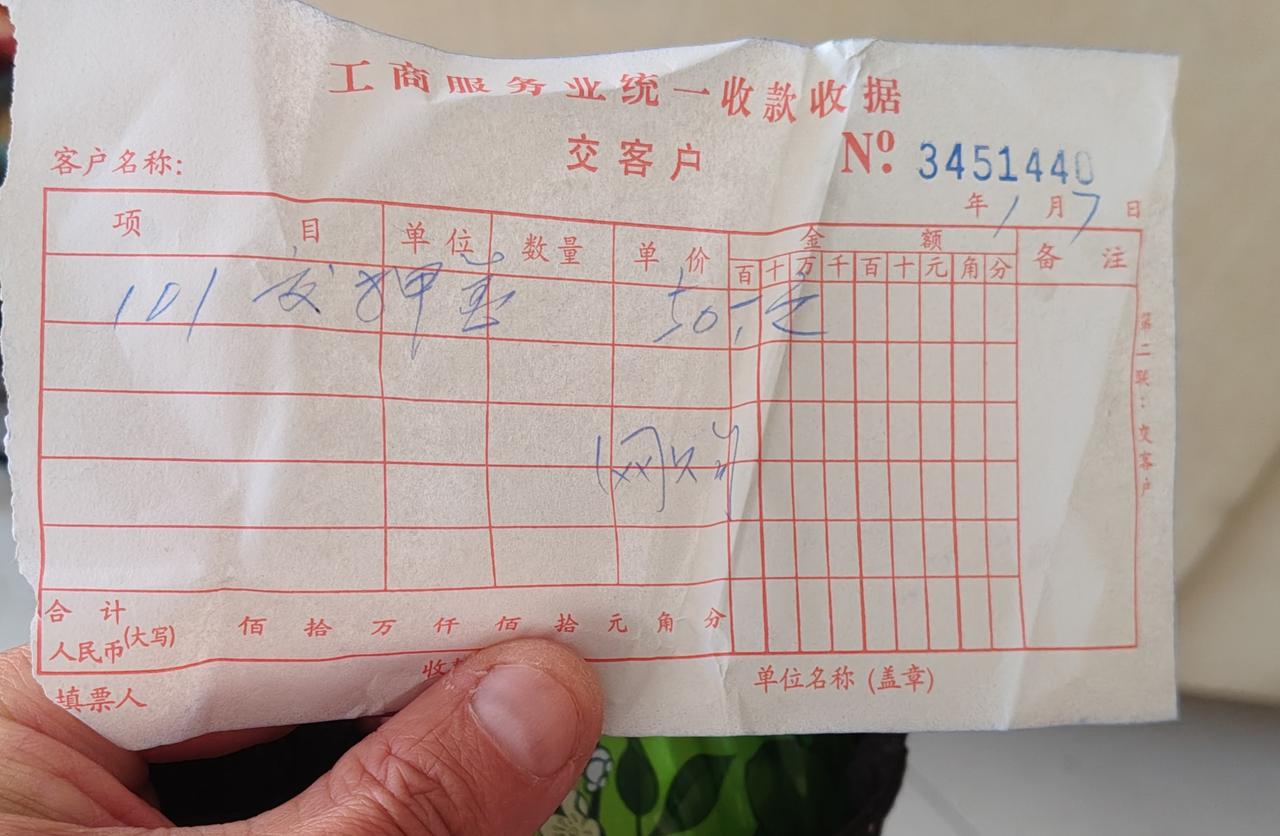 工商服务业统一收款收据
交客户 Nº 3451440
客户名称:
年 1 月 7 日
项目 单位 数量 单价 金额 备注
百 十 万 千 百 十 元 角 分
101 押 50.元
第二联:交客户
合计
人民币(大写) 佰 拾 万 仟 佰 拾 元 角 分
填票人 收 单位名称(盖章)